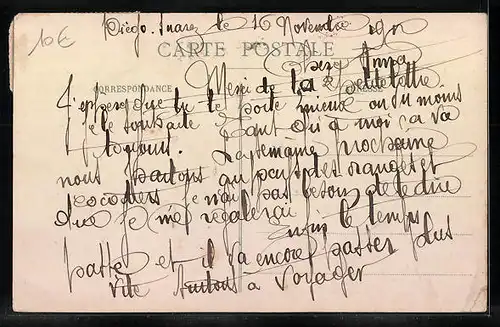 10€
Diégo-Suarez le 16 Novembre
CARTE POSTALE
Chère Anna
CORRESPONDANCE
Merci de ta lettre
J'espère que tu te porte mieux ou du moins
je le souhaite Quant à moi ça va
toujours. La semaine prochaine
nous partons au pays des oranges et
cocotiers je n'ai pas besoin de te dire
que je me régalerai
mais le temps
passe et il va encore passer plus
vite à voyager